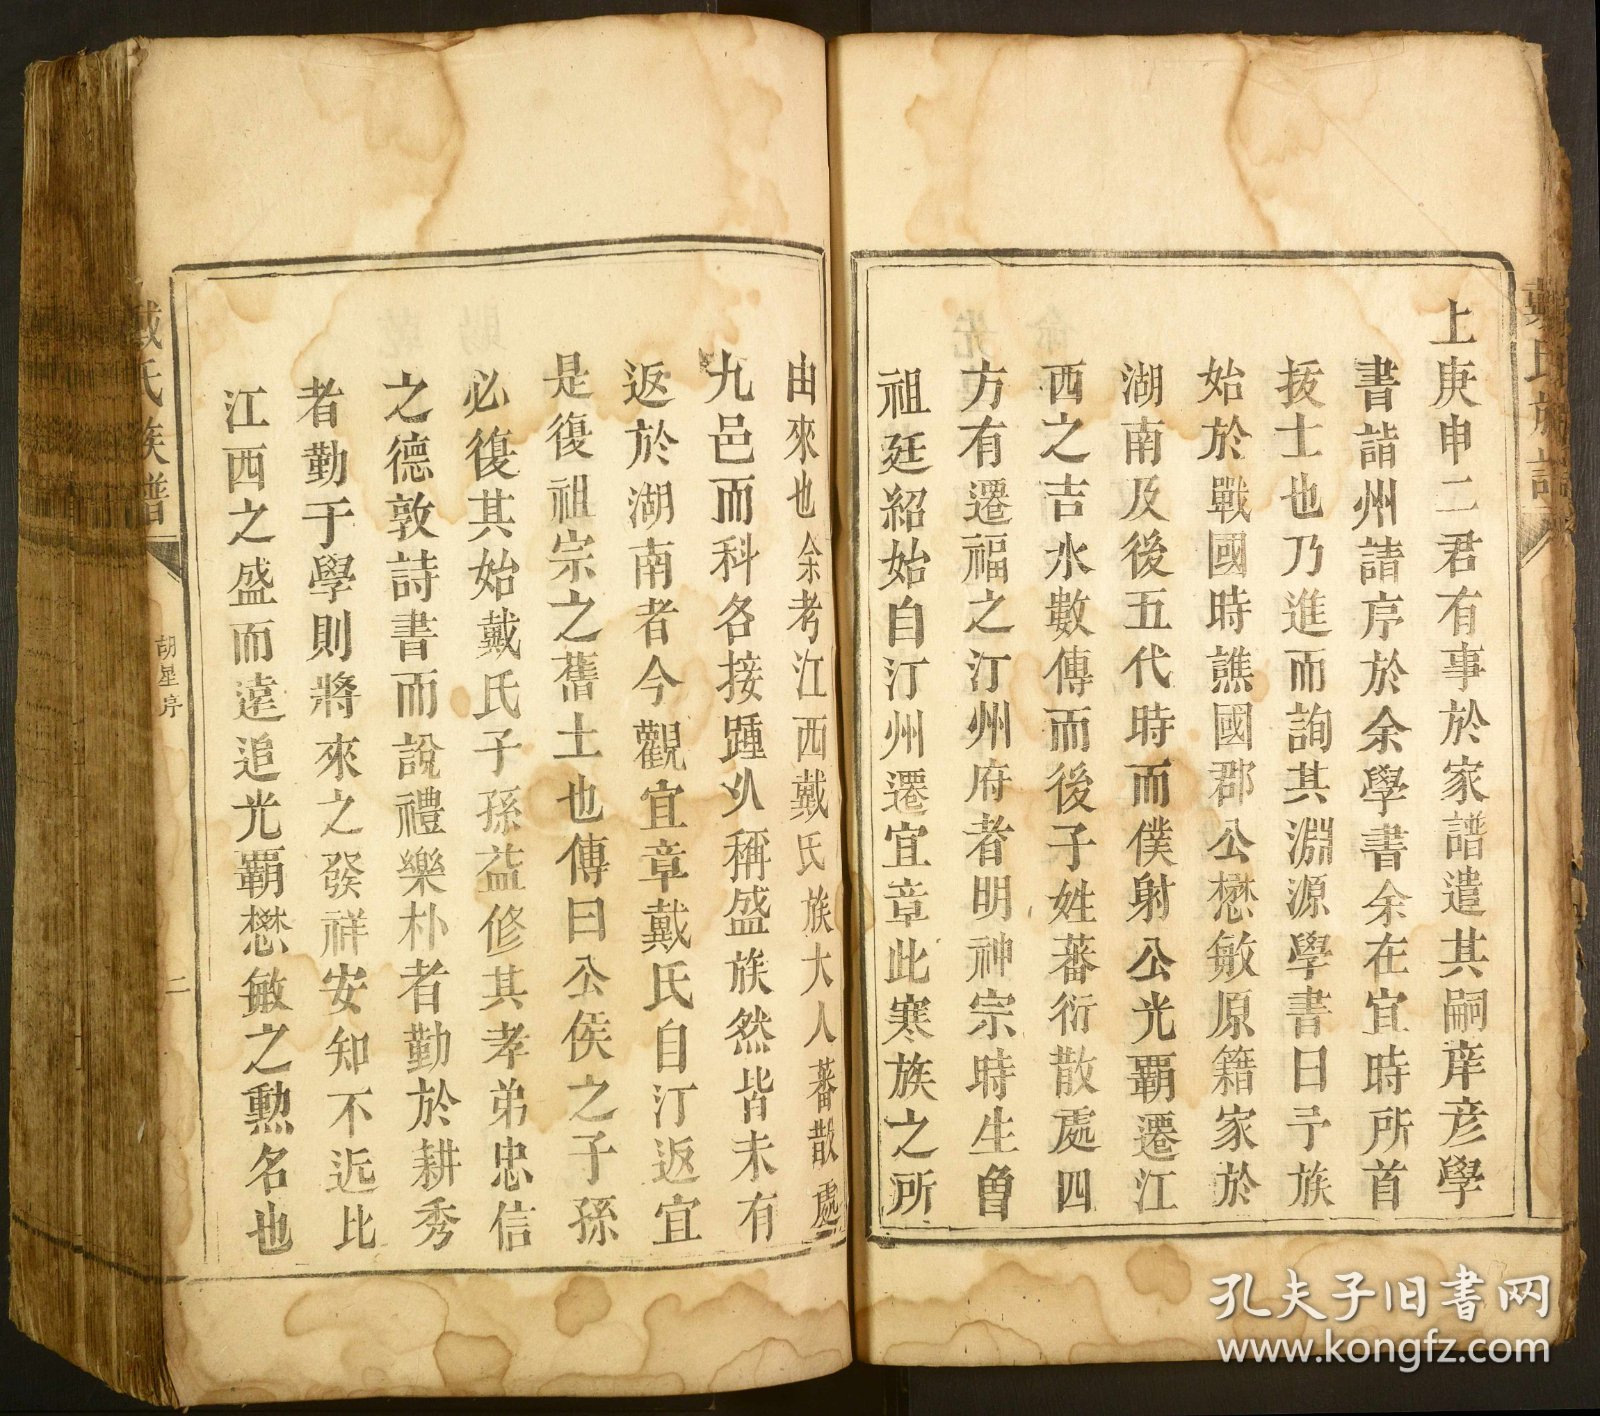 戴氏族譜
上庚申二君有事於家譜遣其嗣庠彥學
書詣州請序於余學書余在宜時所首
拔士也乃進而詢其淵源學書曰予族
始於戰國時譙國郡公懋敏原籍家於
湖南及後五代時而僕射公光霸遷江
西之吉水數傳而後子姓蕃衍散處四
方有遷福之汀州府者明神宗時生曾
祖廷紹始自汀州遷宜章此寒族之所
由來也余考江西戴氏族大人蕃散處
九邑而科各接踵必稱盛族然皆未有
返於湖南者今觀宜章戴氏自汀返宜
是復祖宗之舊土也傳曰公侯之子孫
必復其始戴氏子孫益修其孝弟忠信
之德敦詩書而說禮樂朴者勤於耕秀
者勤于學則將來之發祥安知不遠比
江西之盛而遠追光霸懋敏之勲名也
戴氏族譜
胡星序
二
孔夫子旧书网
www.kongfz.com